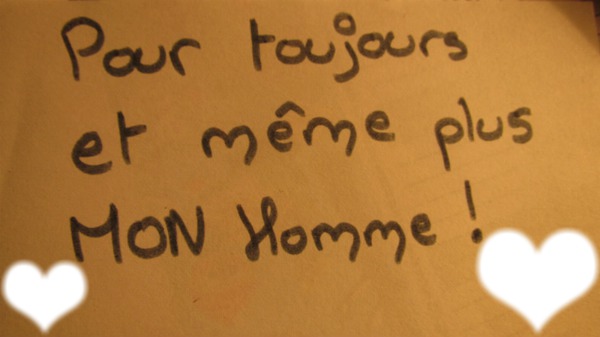 Pour toujours
et même plus
MON Homme !